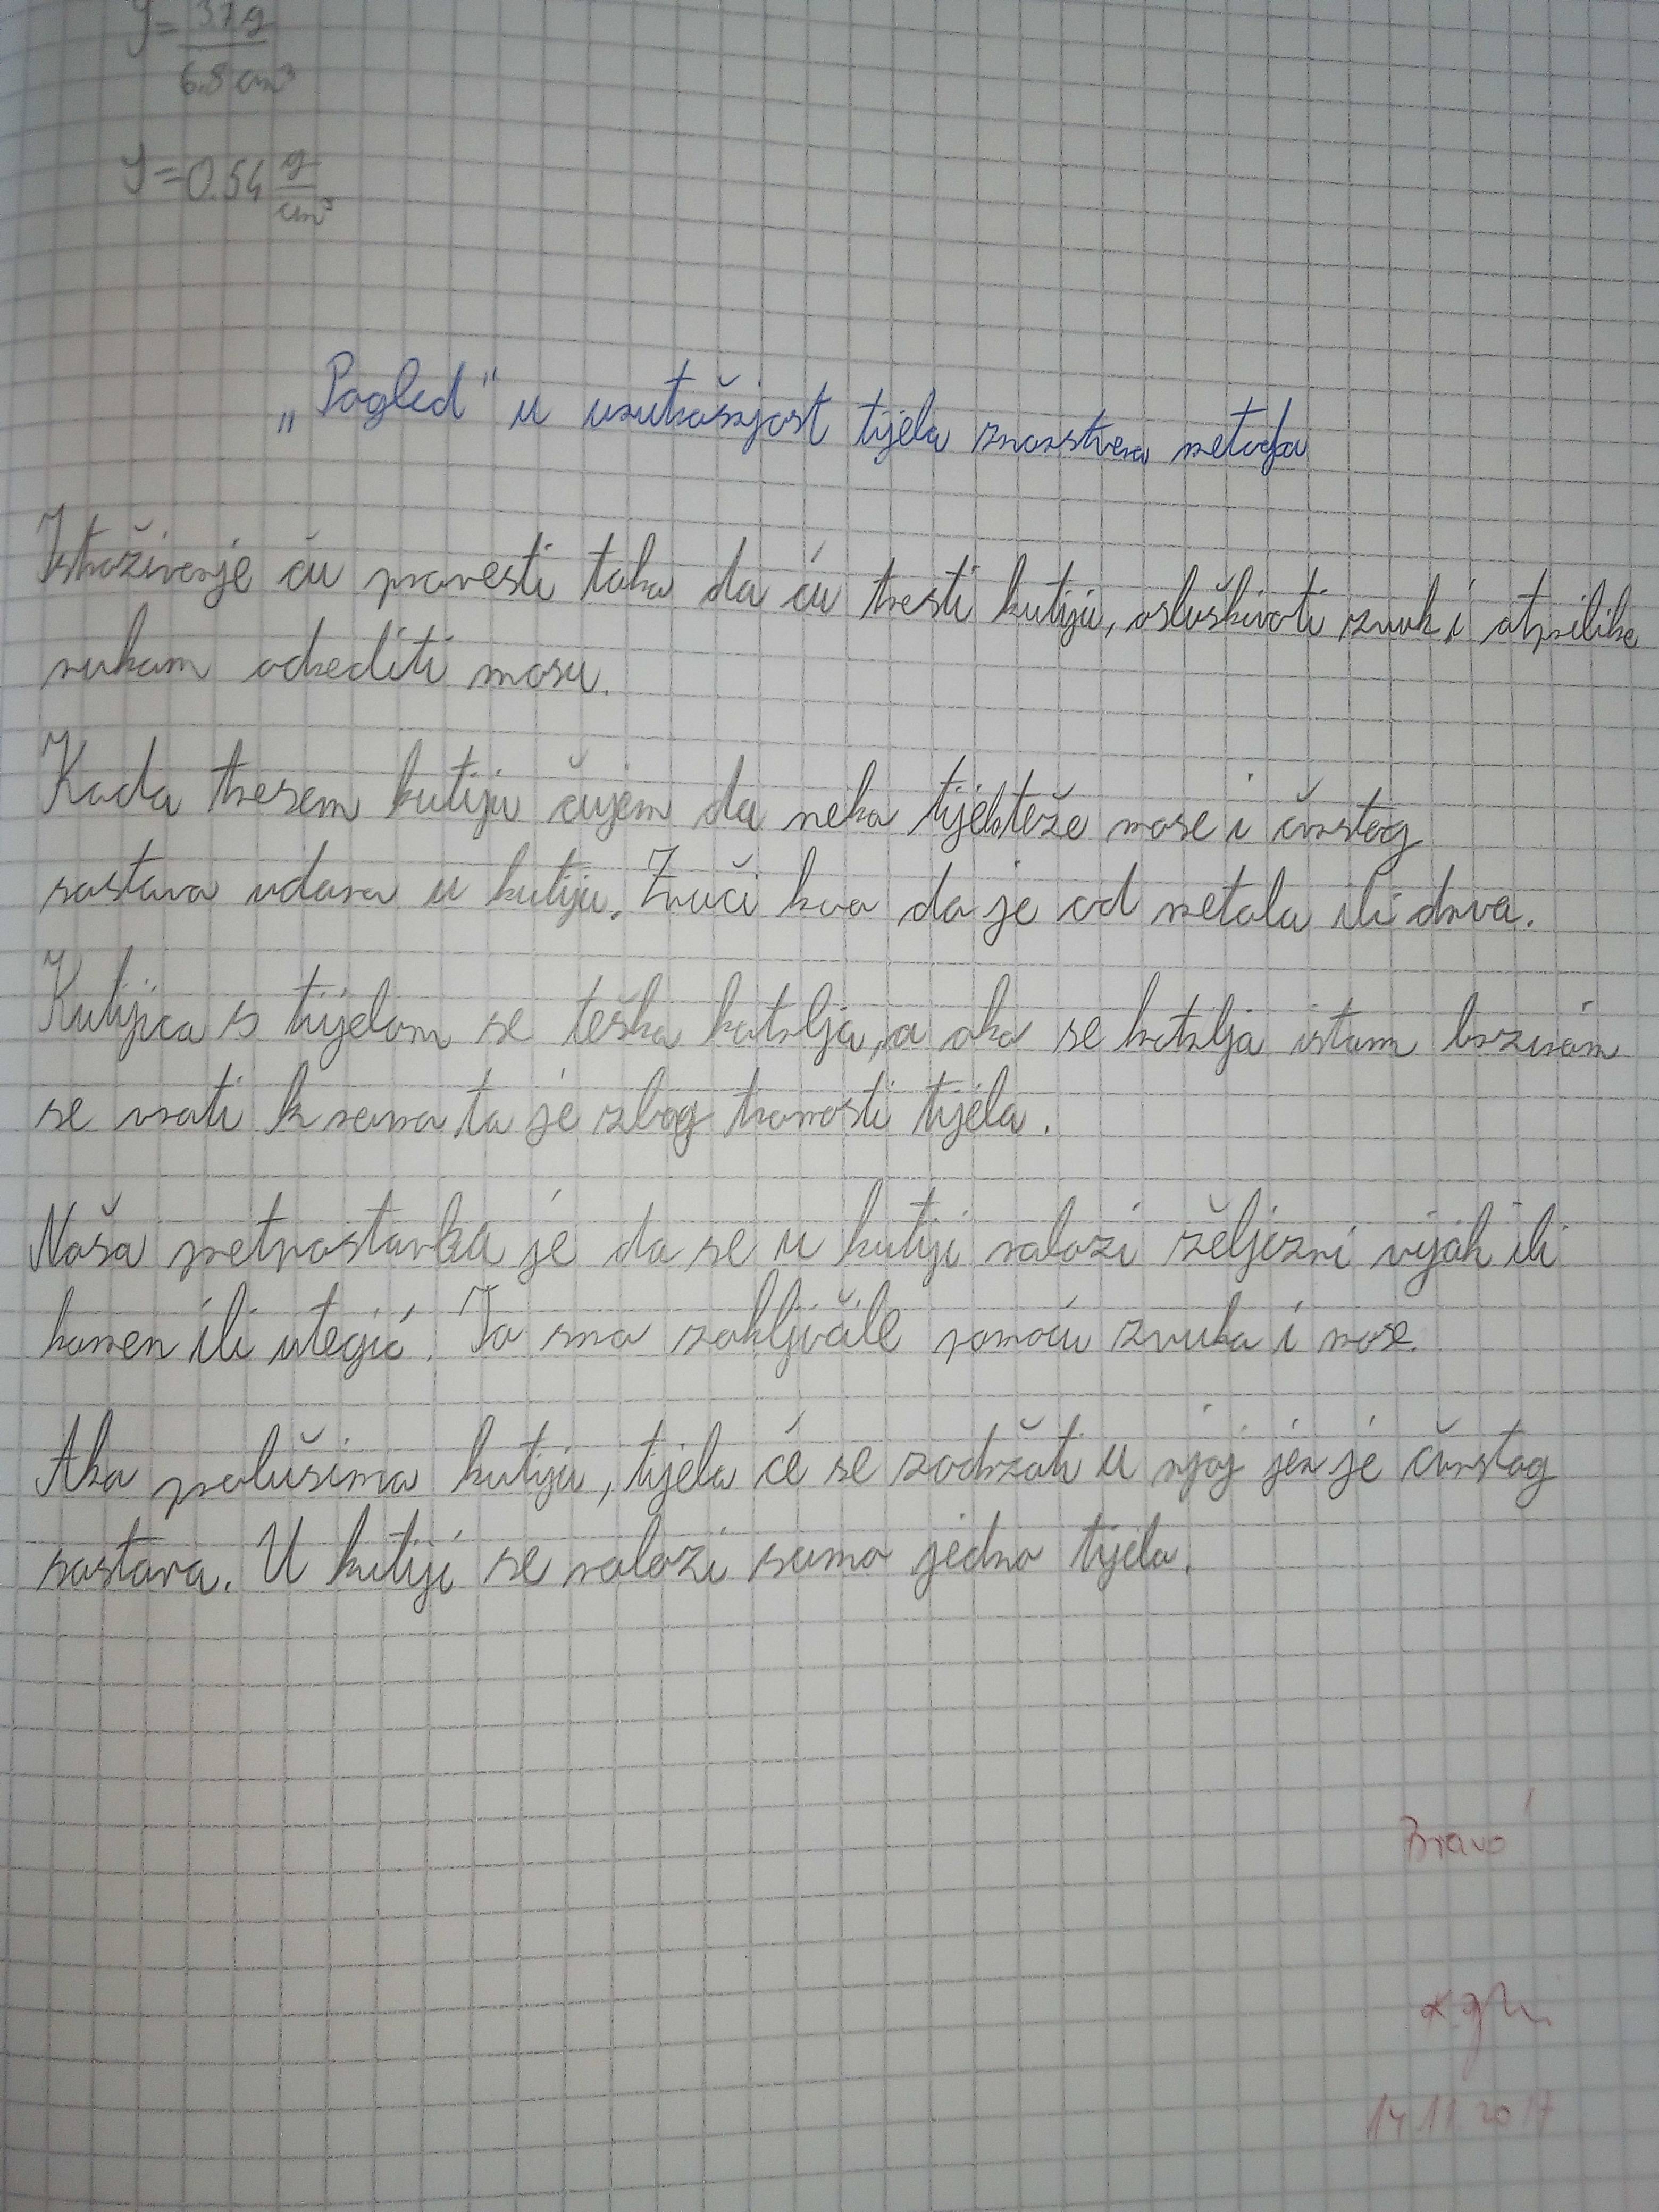 ρ = 37 g
6.8 cm³
ρ = 0.54 g
cm³
„Pogled" u unutrašnjost tijela znanstvena metoda
Istraživanje ću provesti tako da ću tresti kutiju, osluškivati zvuk i otprilike
rukom odrediti masu.
Kada tresem kutiju čujem da neko tijelo teže mase i čvrstog
sastava udara u kutiju. Zvuči kao da je od metala ili drva.
Kutijica s tijelom se teško kotrlja, a ako se kotrlja istom brzinom
se vrati k nama to je zbog tromosti tijela.
Naša pretpostavka je da se u kutiji nalazi željezni vijak ili
kamen ili utegić. To smo zaključile pomoću zvuka i mase.
Ako poklušimo kutiju, tijelo će se zadržati u njoj jer je čvrstog
sastava. U kutiji se nalazi samo jedno tijelo.
Bravo!
14.11.2017